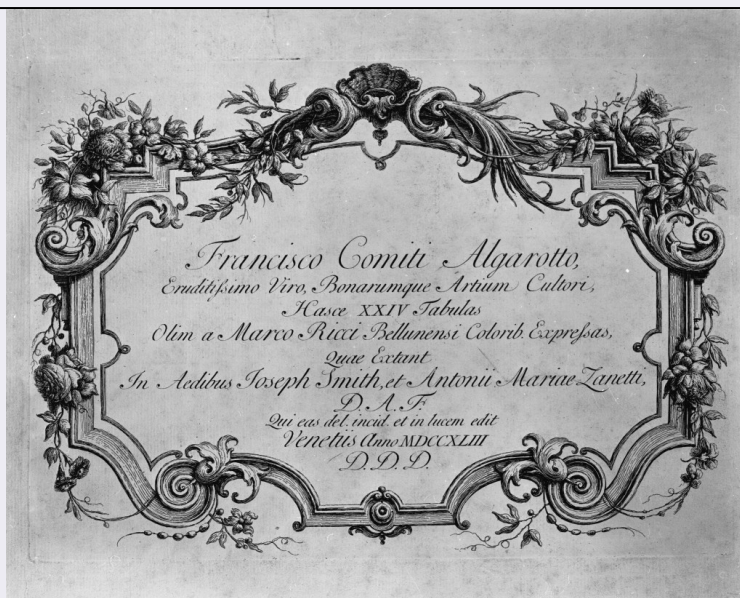 Francisco Comiti Algarotto,
Eruditissimo Viro, Bonarumque Artium Cultori,
Hasce XXIV Tabulas
Olim a Marco Ricci Bellunensi Colorib. Expressas,
Quae Extant
In Aedibus Joseph Smith, et Antonii Mariae Zanetti,
D. A. F.
Qui eas del. incid. et in lucem edit
Venetiis Anno MDCCXLIII
D. D. D.